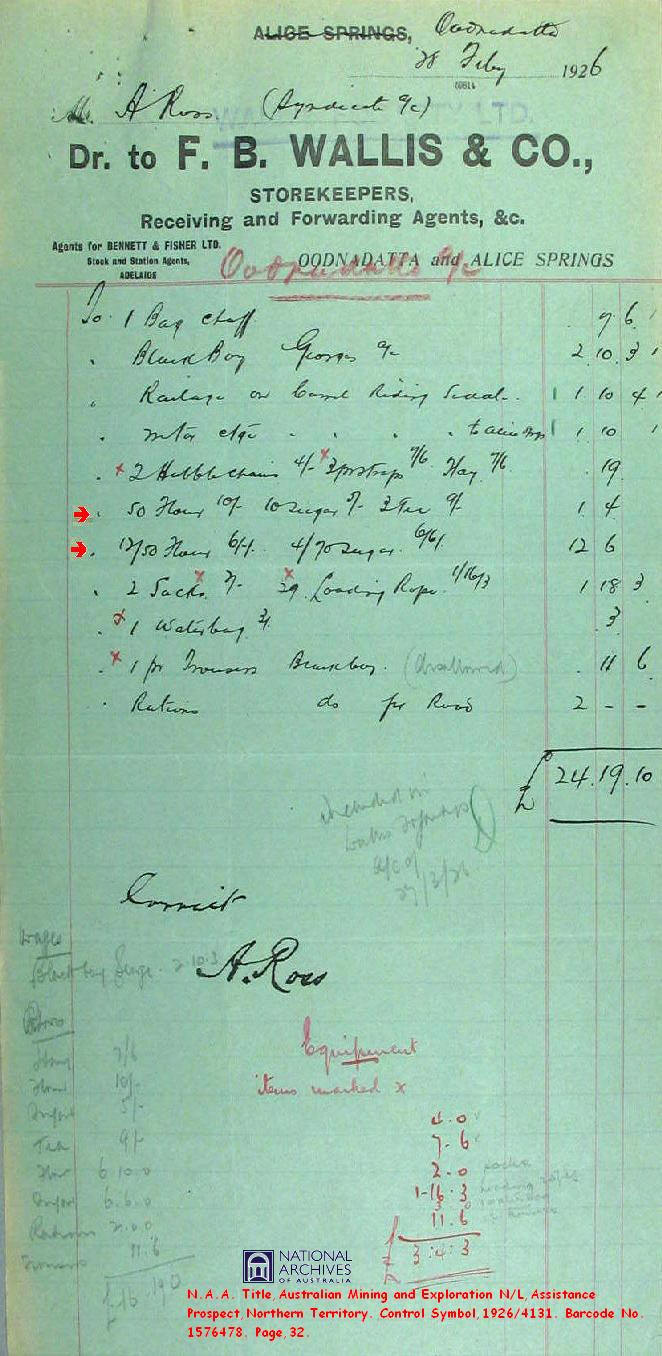 ALICE SPRINGS, Oodnadatta
28 Feby 1926
60814
Mr. A Ross. (Syndicate a/c)
Dr. to F. B. WALLIS & CO.,
STOREKEEPERS,
Receiving and Forwarding Agents, &c.
Agents for BENNETT & FISHER LTD.
Stock and Station Agents,
ADELAIDE
OODNADATTA and ALICE SPRINGS
Oodnadatta a/c
To 1 Bag Chaff 7 6
" Black Boy Georges a/c 2 10 3
" Railage on Camel Riding Saddle 1 10 4
" Motor " " " " to Alice Spgs 1 10
" x 2 Hobble chains 4/- x 3 pr straps 7/6 Hay 7/6 19
" 50 Flour 10/- 10 Sugar 5/- 3 Tea 9/- 1 4
" 12/50 Flour 6/-/- 4/70 Sugar 6/6/- 12 6
" 2 Sacks x 2/- x 29 Loading Rope 1/16/3 1 18 3
" x 1 Waterbag 3/- 3
" x 1 pr Trousers Blackboy. (Disallowed) 11 6
" Rations do for Road 2 - -
£ 24.19.10
Included in
a/c of
27/3/26
Correct
A. Ross
Wages
Black boy George. 2.10.3
Equipment
items marked x
4.0
7.6
2.0 sacks
1-16.3 loading ropes
3 0
11.6 trousers
£ 3:4:3
7/6
Flour 10/-
Sugar 5/-
Tea 9/-
Flour 6.10.0
Sugar 6.6.0
Rations 2.0.0
Trousers 11.6
£16 19 0
NATIONAL
ARCHIVES
OF AUSTRALIA
N.A.A. Title, Australian Mining and Exploration N/L, Assistance
Prospect, Northern Territory. Control Symbol, 1926/4131. Barcode No.
1576478. Page, 32.